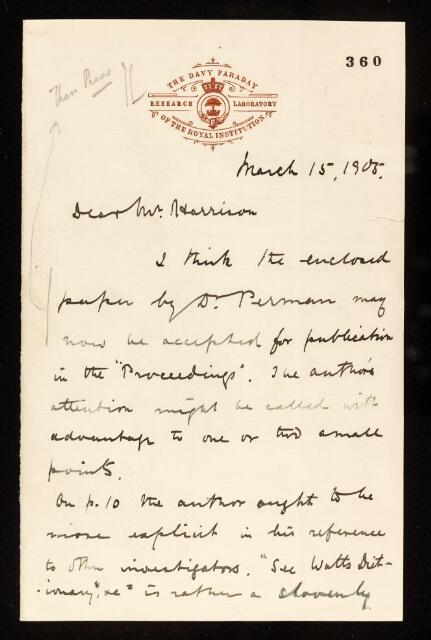 360
Then Press
THE DAVY FARADAY
RESEARCH LABORATORY
OF THE ROYAL INSTITUTION.
March 15, 1905.
Dear Mr. Harrison
I think the enclosed
paper by Dr. Perman may
now be accepted for publication
in the "Proceedings". The author's
attention might be called with
advantage to one or two small
points.
On p. 10 the author ought to be
more explicit in his reference
to other investigators. "See Watts Dict-
-ionary, &c" is rather a slovenly